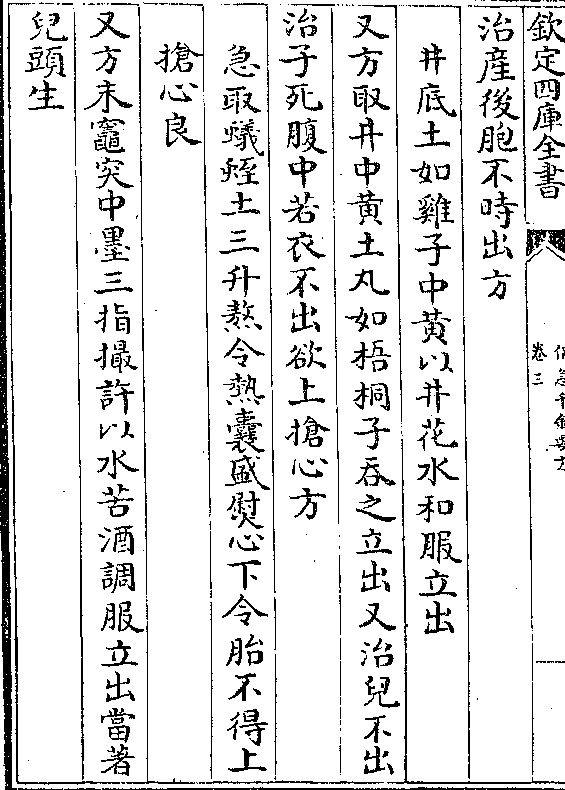 欽定四庫全書
卷三
治産後胞不時出方
井底土如雞子中黄以井花水和服立出
又方取井中黄土丸如梧桐子吞之立出又治兒不出
治子死腹中若衣不出欲上搶心方
急取蟻蛭土三升熬令熱囊盛熨心下令胎不得上
搶心良
又方末竈突中墨三指撮許以水苦酒調服立出當著
兒頭生